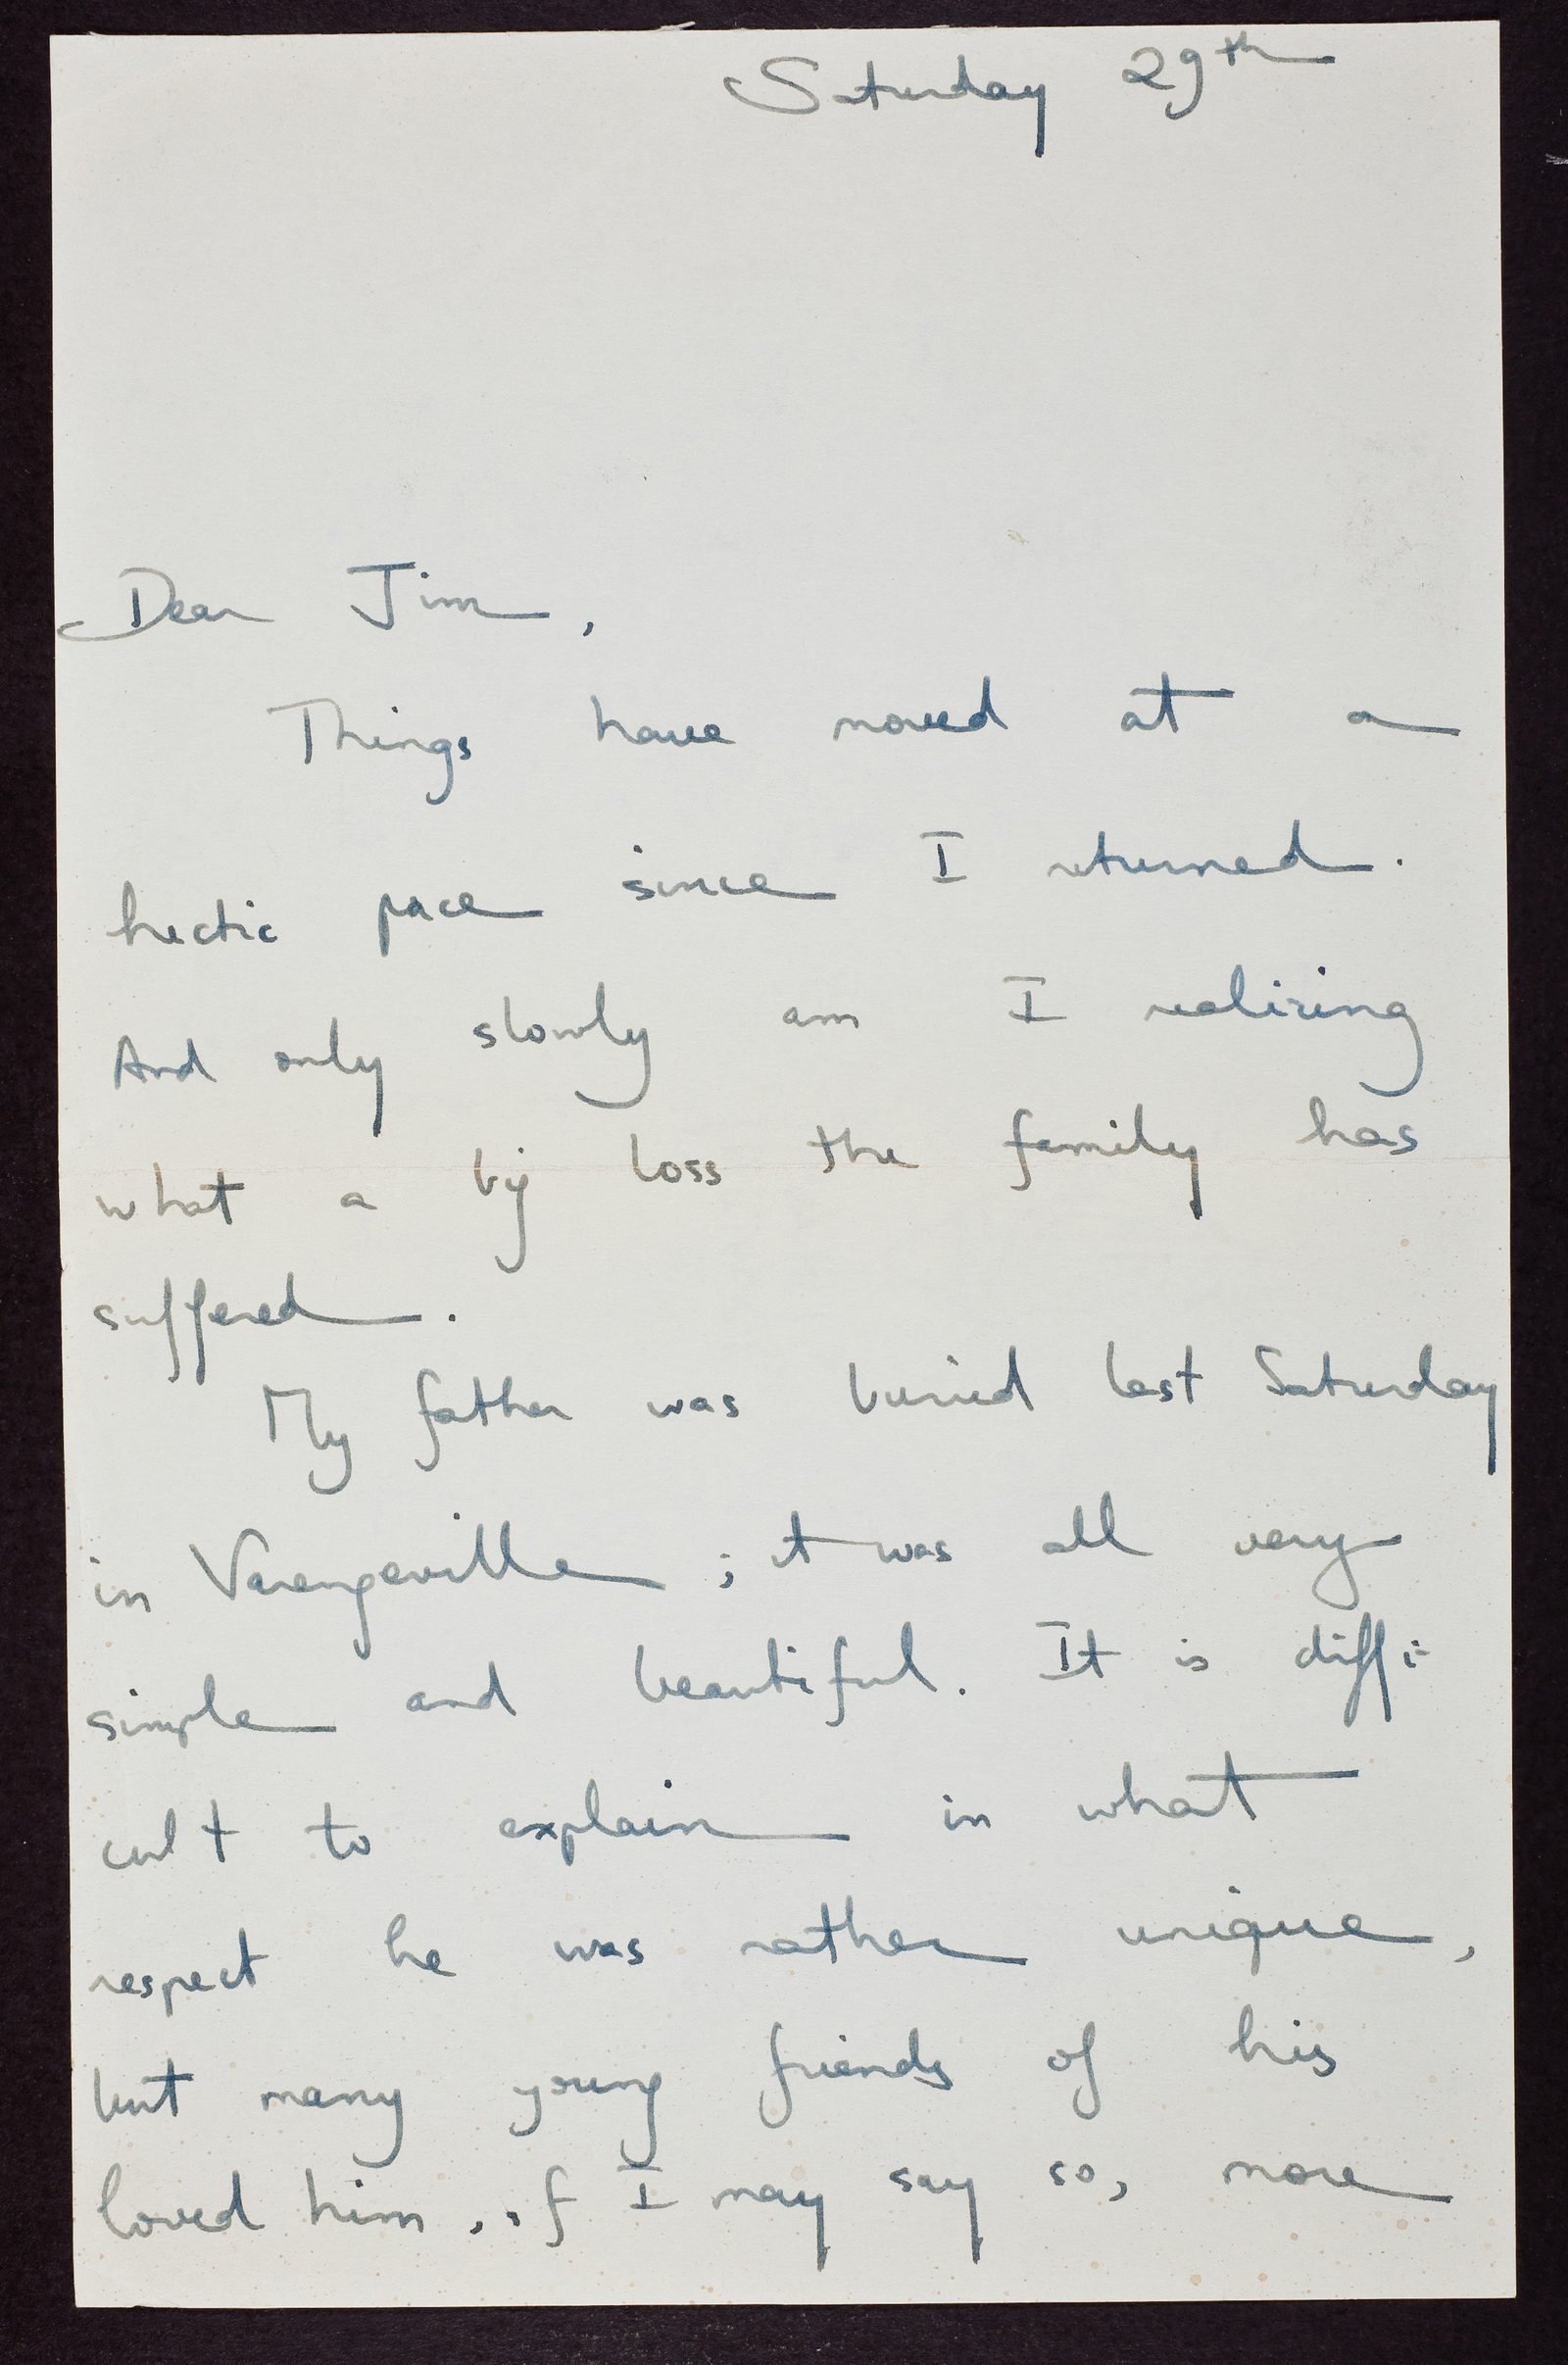 Saturday 29th
Dear Jim,
Things have moved at a
hectic pace since I returned.
And only slowly am I realizing
what a big loss the family has
suffered.
My father was buried last Saturday
in Varengeville; it was all very
simple and beautiful. It is diffi-
cult to explain in what
respect he was rather unique,
but many young friends of his
loved him, if I may say so, more